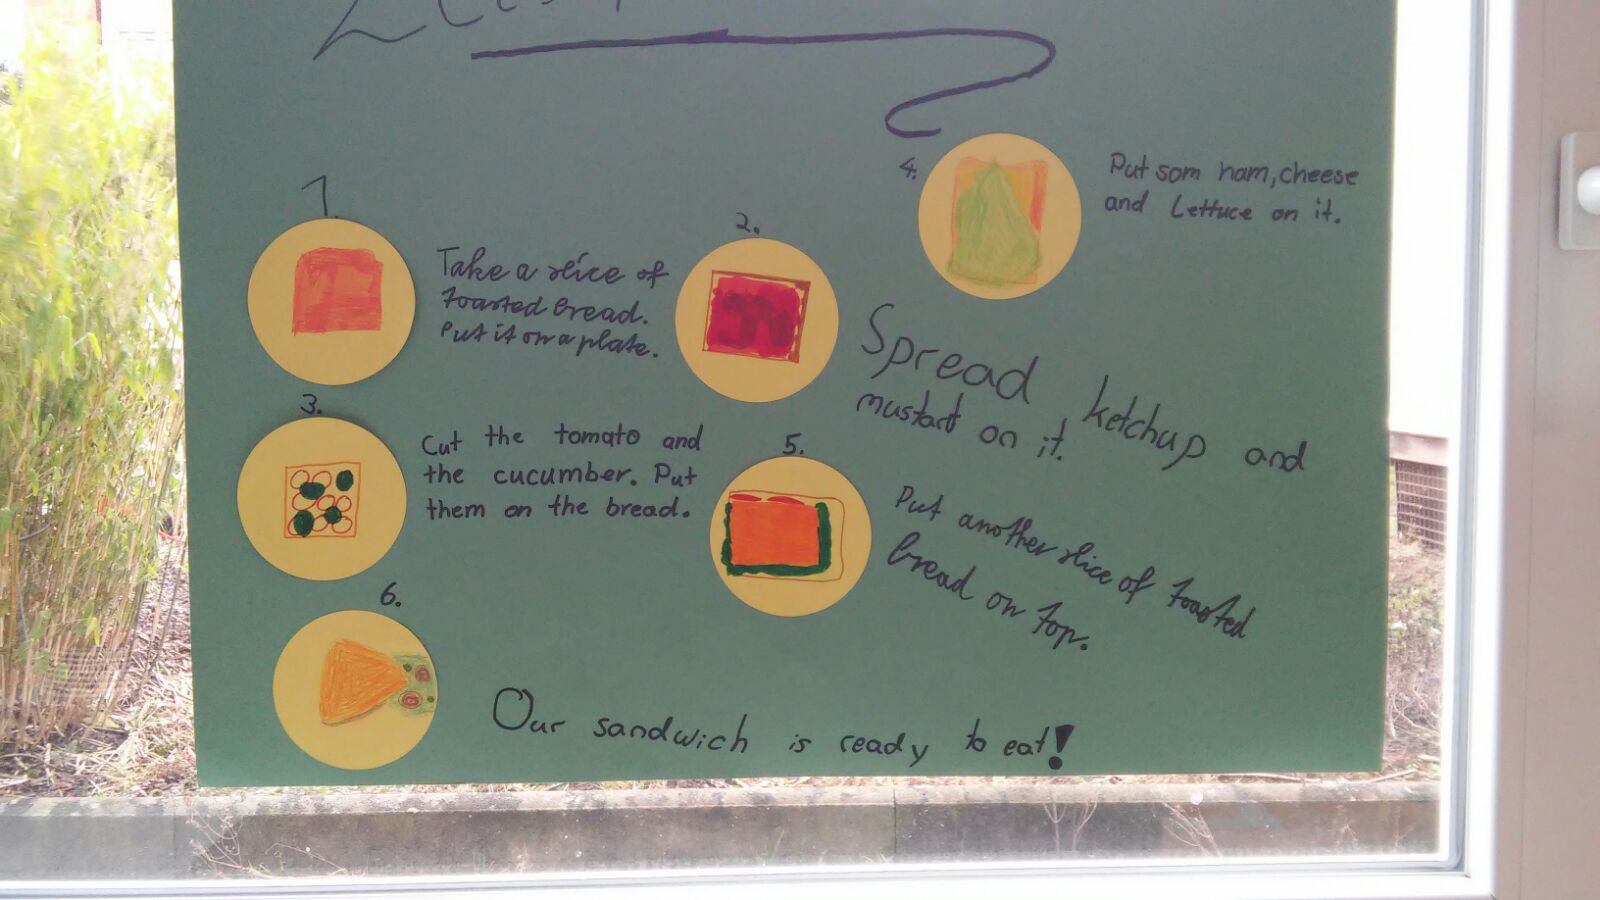 1.
Take a slice of
toasted bread.
Put it on a plate.
2.
Spread ketchup and
mustart on it.
3.
Cut the tomato and
the cucumber. Put
them on the bread.
4.
Put som ham, cheese
and Lettuce on it.
5.
Put another slice of toasted
bread on top.
6.
Our sandwich is ready to eat!